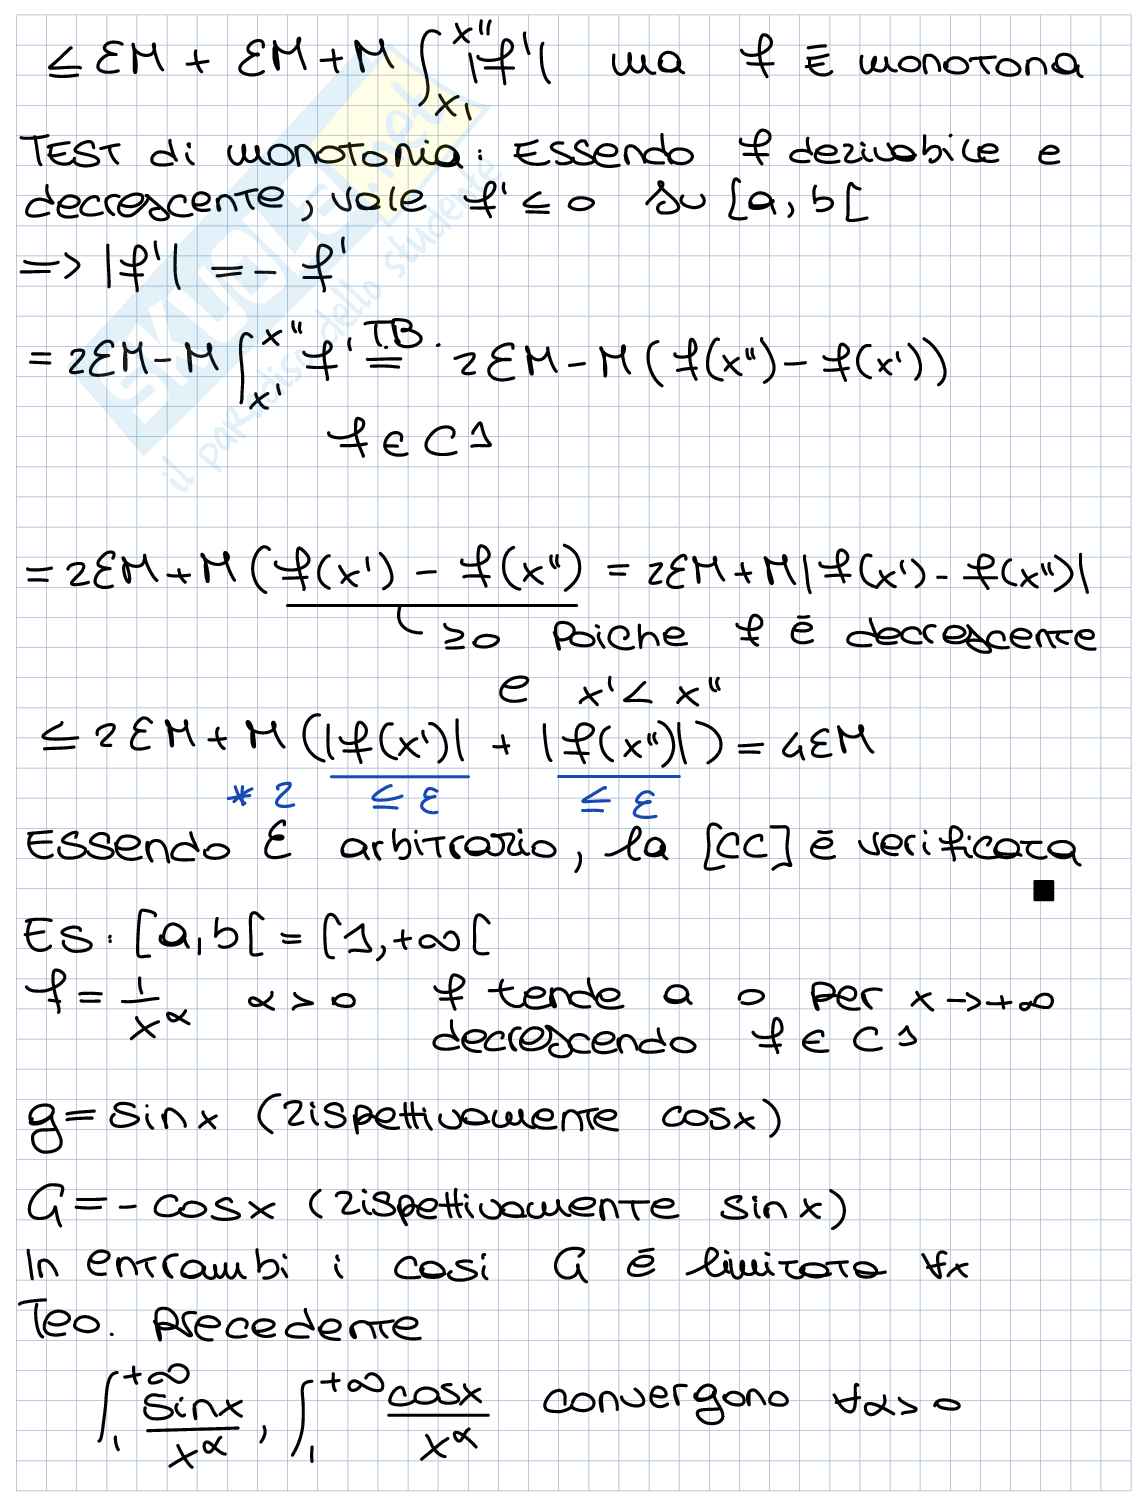 ≤ εM + εM + M ∫_{x₁}^{x''} |f'| ma f È monotona
TEST di monotonia: Essendo f derivabile e
decrescente, vale f' ≤ 0 su [a, b[
=> |f'| = - f'
= 2εM - M ∫_{x'}^{x''} f' =^{T.B.} 2εM - M (f(x'') - f(x'))
f ∈ C1
= 2εM + M (f(x') - f(x'')) = 2εM + M |f(x') - f(x'')|
≥ 0 Poiche f è decrescente
e x' < x''
≤ 2εM + M (|f(x')| + |f(x'')|) = 4εM
* 2 ≤ ε ≤ ε
Essendo ε arbitrario, la [CC] è verificata
■
Es: [a, b[ = [1, +∞[
f = 1/x^α α > 0 f tende a 0 per x → +∞
decrescendo f ∈ C1
g = sin x (rispettivamente cos x)
G = - cos x (rispettivamente sin x)
In entrambi i casi G è limitata ∀x
Teo. precedente
∫_1^{+∞} sinx/x^α, ∫_1^{+∞} cosx/x^α convergono ∀α > 0
SKUOLA.net
il paradiso dello studente